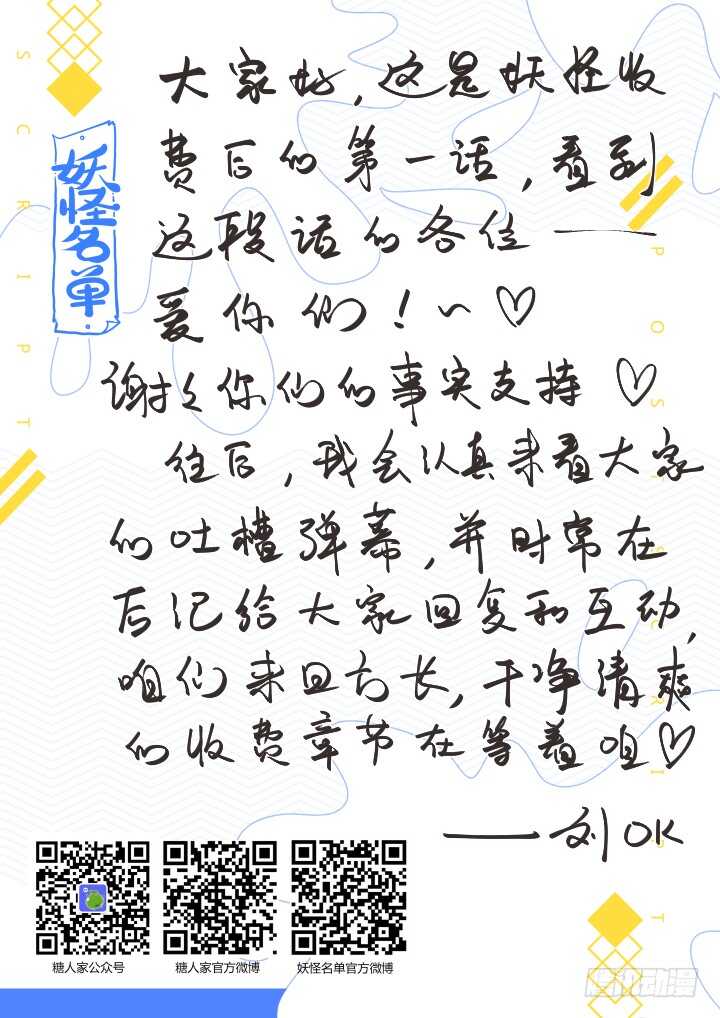 SCRIPT
妖怪名单
大家好,这是妖怪收
费后的第一话,看到
这段话的各位——
爱你们!~♡
谢谢你们的事实支持♡
往后,我会认真来看大家
的吐槽弹幕,并时常在
后记给大家回复和互动,
咱们来日方长,干净清爽
的收费章节在等着咱♡
——刘OK
POSTSCRIPT
糖人家公众号
糖人家官方微博
妖怪名单官方微博
腾讯动漫